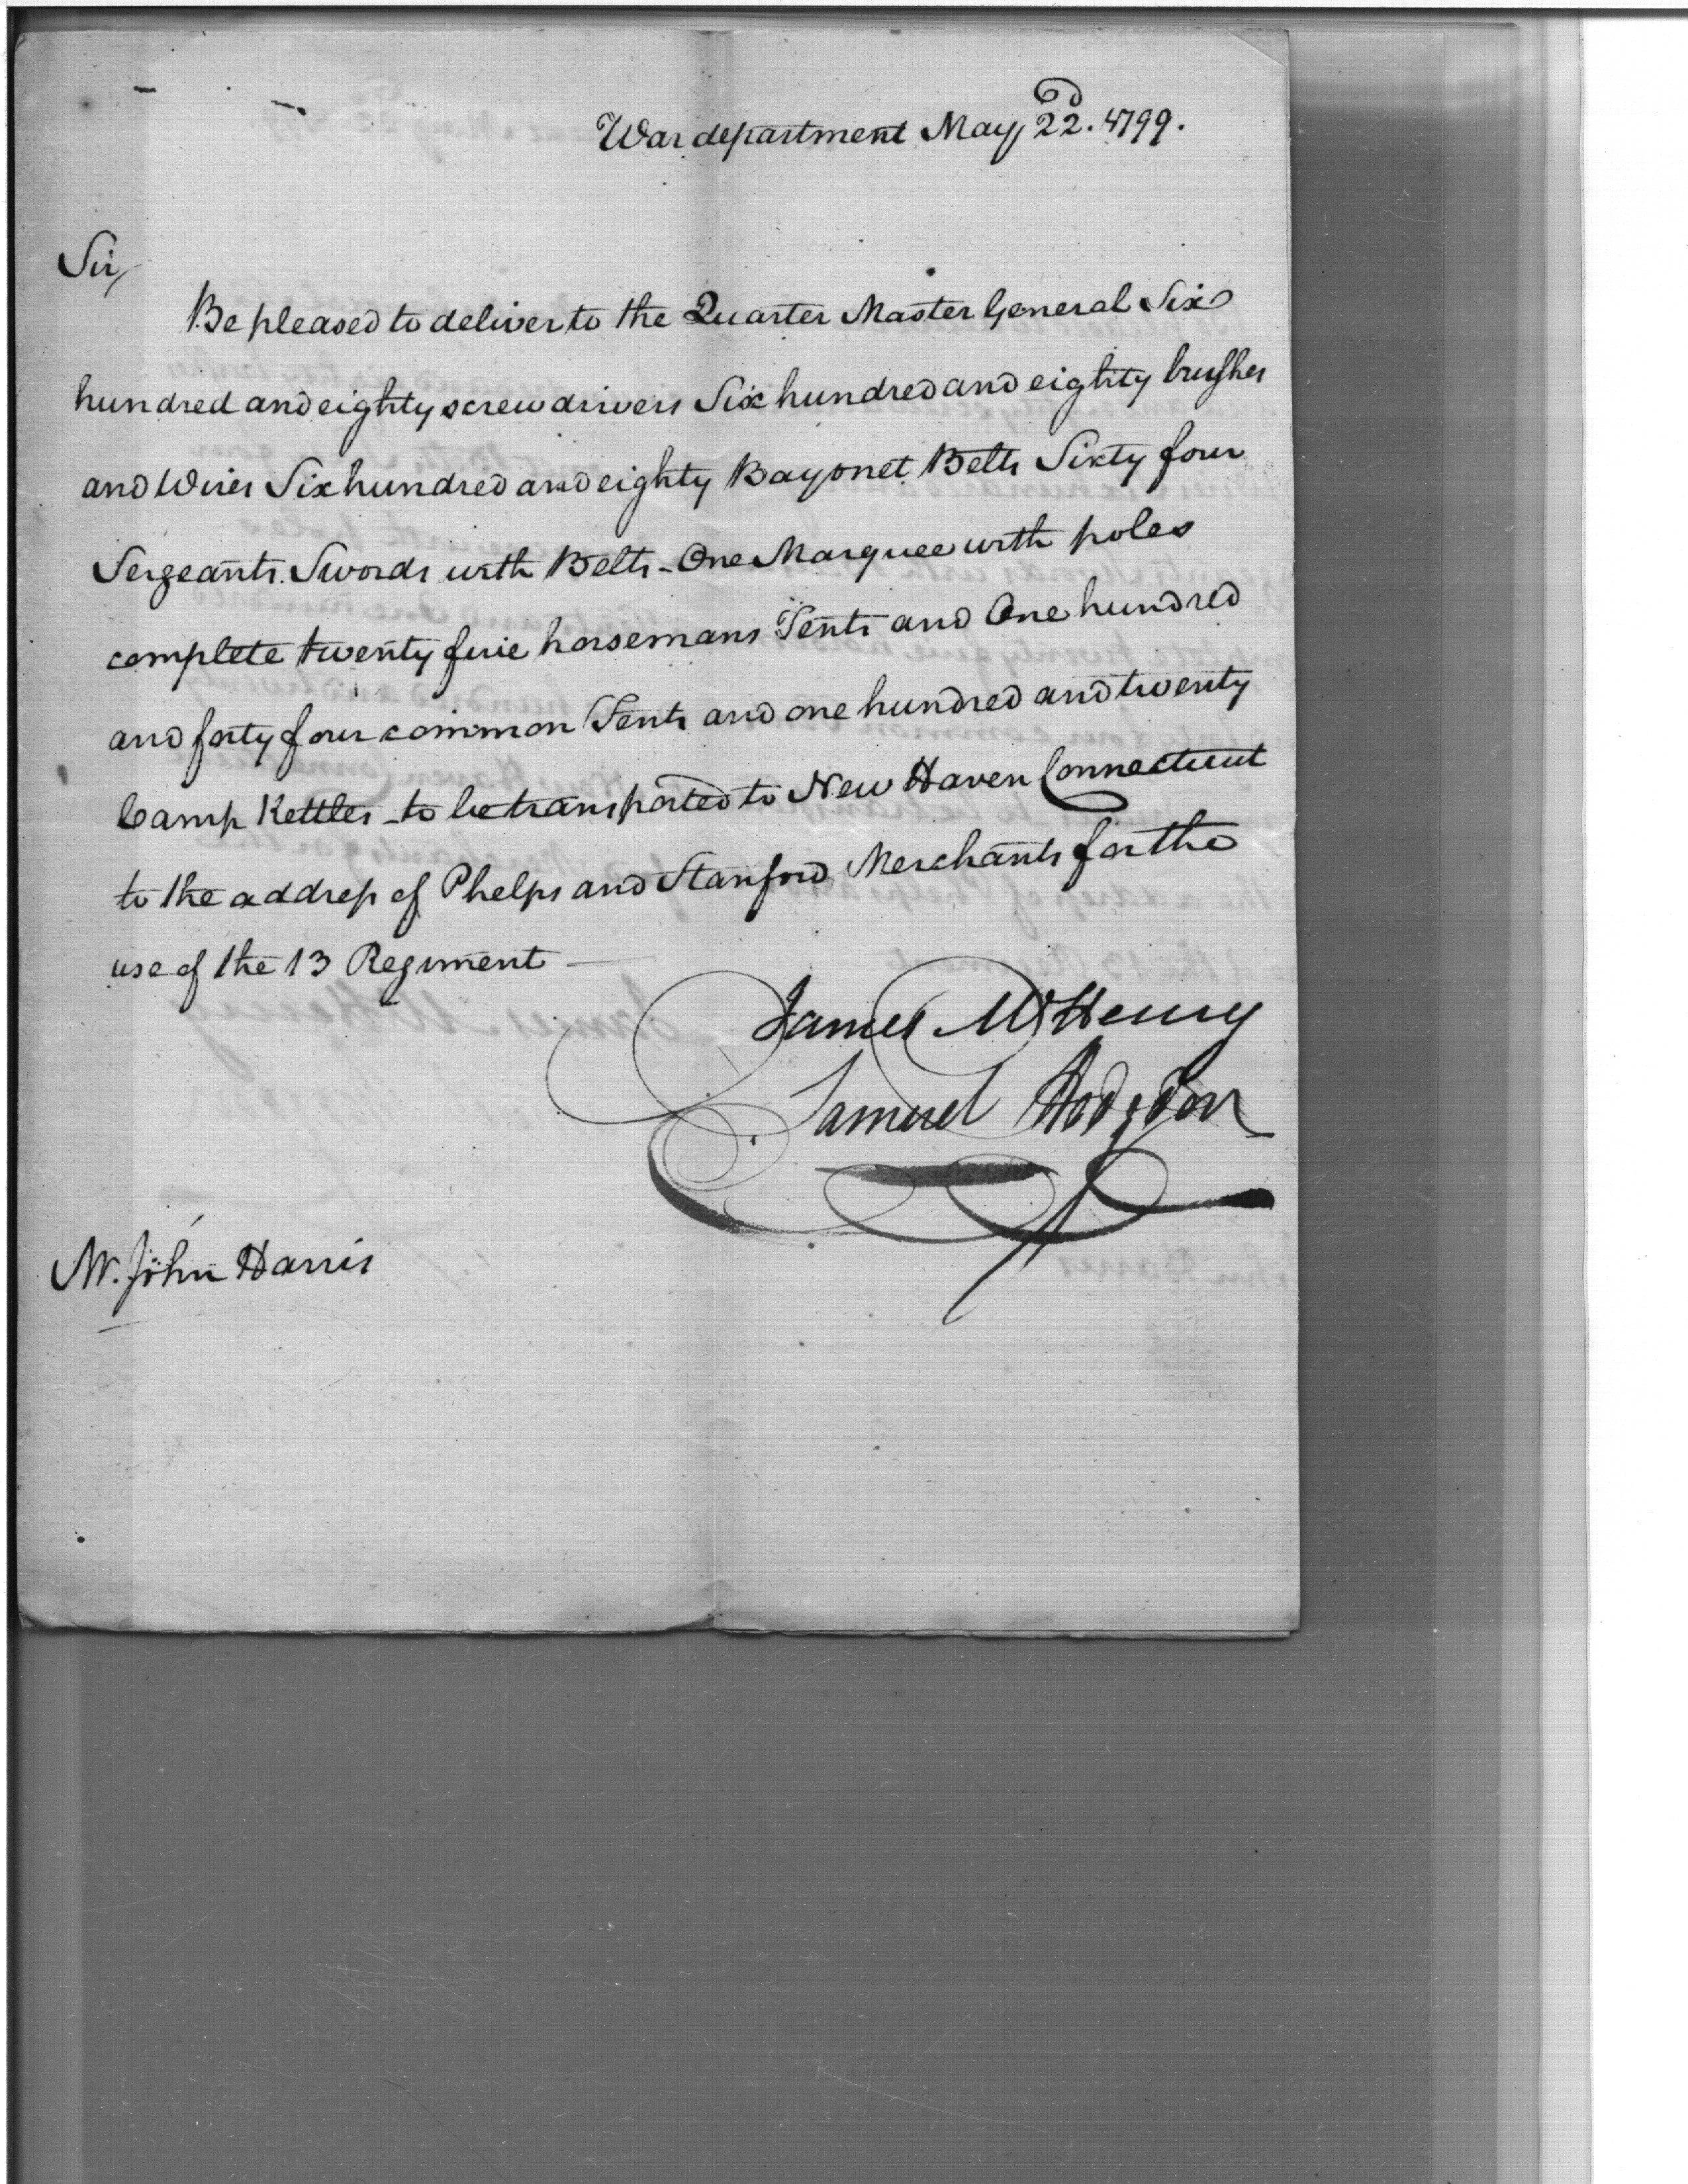 War department May 22d. 1799.
Sir,
Be pleased to deliver to the Quarter Master General Six
hundred and eighty screw drivers Six hundred and eighty brushes
and Wires Six hundred and eighty Bayonet Belts Sixty four
Sergeants Swords with Belts - One Marquee with poles
complete twenty five horsemans Tents and One hundred
and forty four common Tents and one hundred and twenty
Camp Kettles - to be transported to New Haven Connecticut
to the address of Phelps and Stanford Merchants for the
use of the 13 Regiment —
James McHenry
Samuel Hodgdon
Mr. John Harris